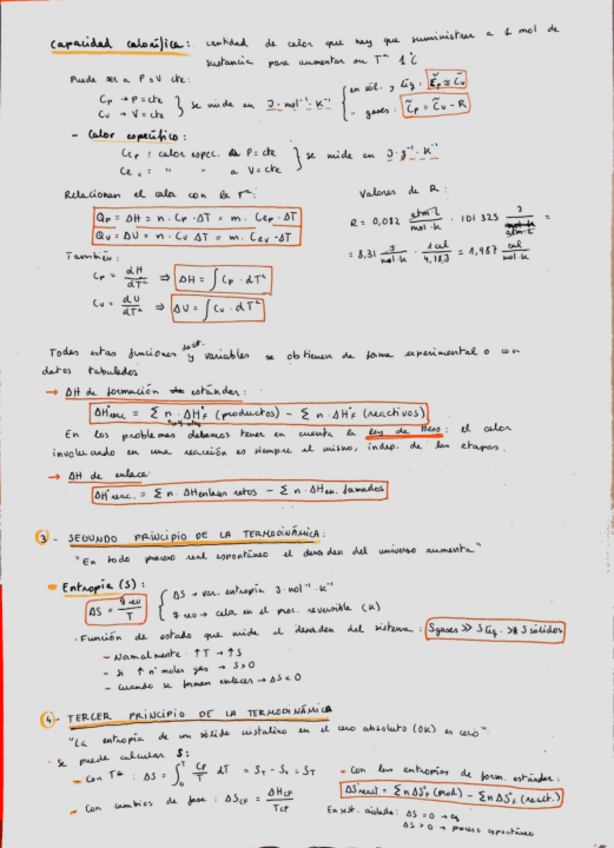 Capacidad calorífica: cantidad de calor que hay que suministrar a 1 mol de
sustancia para aumentar su Tª 1°C
Puede ser a P o V cte:
Cp → P = cte
Cv → V = cte } se mide en J·mol⁻¹·K⁻¹
en sól. y líq: C̃p ≈ C̃v
gases: C̃p = C̃v - R
- Calor específico:
Cep: calor espec. a P = cte
Cev: " " a V = cte } se mide en J·g⁻¹·K⁻¹
Relacionan el calor con la Tª:
Qp = ΔH = n·Cp·ΔT = m·Cep·ΔT
Qv = ΔU = n·Cv ΔT = m·Cev·ΔT
También:
Cp = dH/dTª ⇒ ΔH = ∫Cp·dTª
Cv = dU/dTª ⇒ ΔU = ∫Cv·dTª
Valores de R:
R = 0,082 atm·L/mol·K · 101325 J/atm·L =
= 8,31 J/mol·K · 1 cal/4,18J = 1,987 cal/mol·K
Todas estas funciones y variables se obtienen de forma experimental o con
datos tabulados
→ ΔH de formación estándar:
ΔH°reac = Σ n·ΔH°F (productos) - Σ n·ΔH°F (reactivos)
En los problemas debemos tener en cuenta la ley de Hess: el calor
involucrado en una reacción es siempre el mismo, indep. de las etapas.
→ ΔH de enlace:
ΔH°reac. = Σ n·ΔHenlaces rotos - Σ n·ΔHen. formados
3- SEGUNDO PRINCIPIO DE LA TERMODINÁMICA:
"En todo proceso real espontáneo el desorden del universo aumenta"
- Entropía (S):
ΔS = q rev/T
ΔS → var. entropía J·mol⁻¹·K⁻¹
q rev → calor en el proc. reversible (K)
· Función de estado que mide el desorden del sistema: Sgases >> S líq. >> S sólidos
- Normalmente: ↑T → ↑S
- Si ↑ nº moles gas → S>0
- Cuando se forman enlaces → ΔS<0
4- TERCER PRINCIPIO DE LA TERMODINÁMICA
"La entropía de un sólido cristalino en el cero absoluto (0K) es cero"
· Se puede calcular S:
- Con Tª: ΔS = ∫₀ᵀ Cp/T dT = ST - S₀ = ST
- Con cambios de fase: ΔSCF = ΔHCF/TCF
- Con las entropías de form. estándar:
ΔS°react = Σn ΔS°F (prod) - Σn ΔS°F (react.)
En sist. aislado: ΔS = 0 → eq
ΔS > 0 → proceso espontáneo